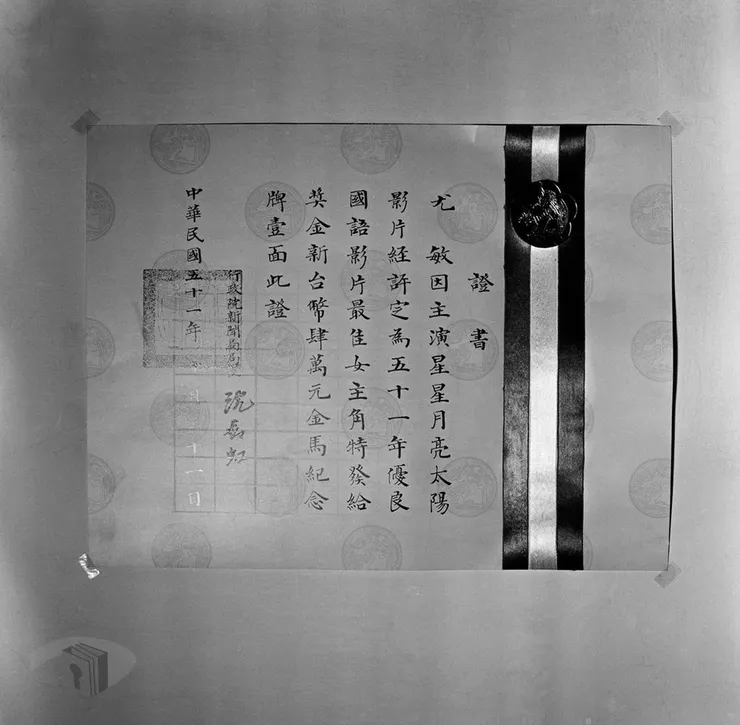 證書
尤敏因主演星星月亮太陽
影片經許定為五十一年優良
國語影片最佳女主角特發給
獎金新台幣肆萬元金馬紀念
牌壹面此證
行政院新聞局局長
沈劍虹
中華民國五十一年
月
十一日